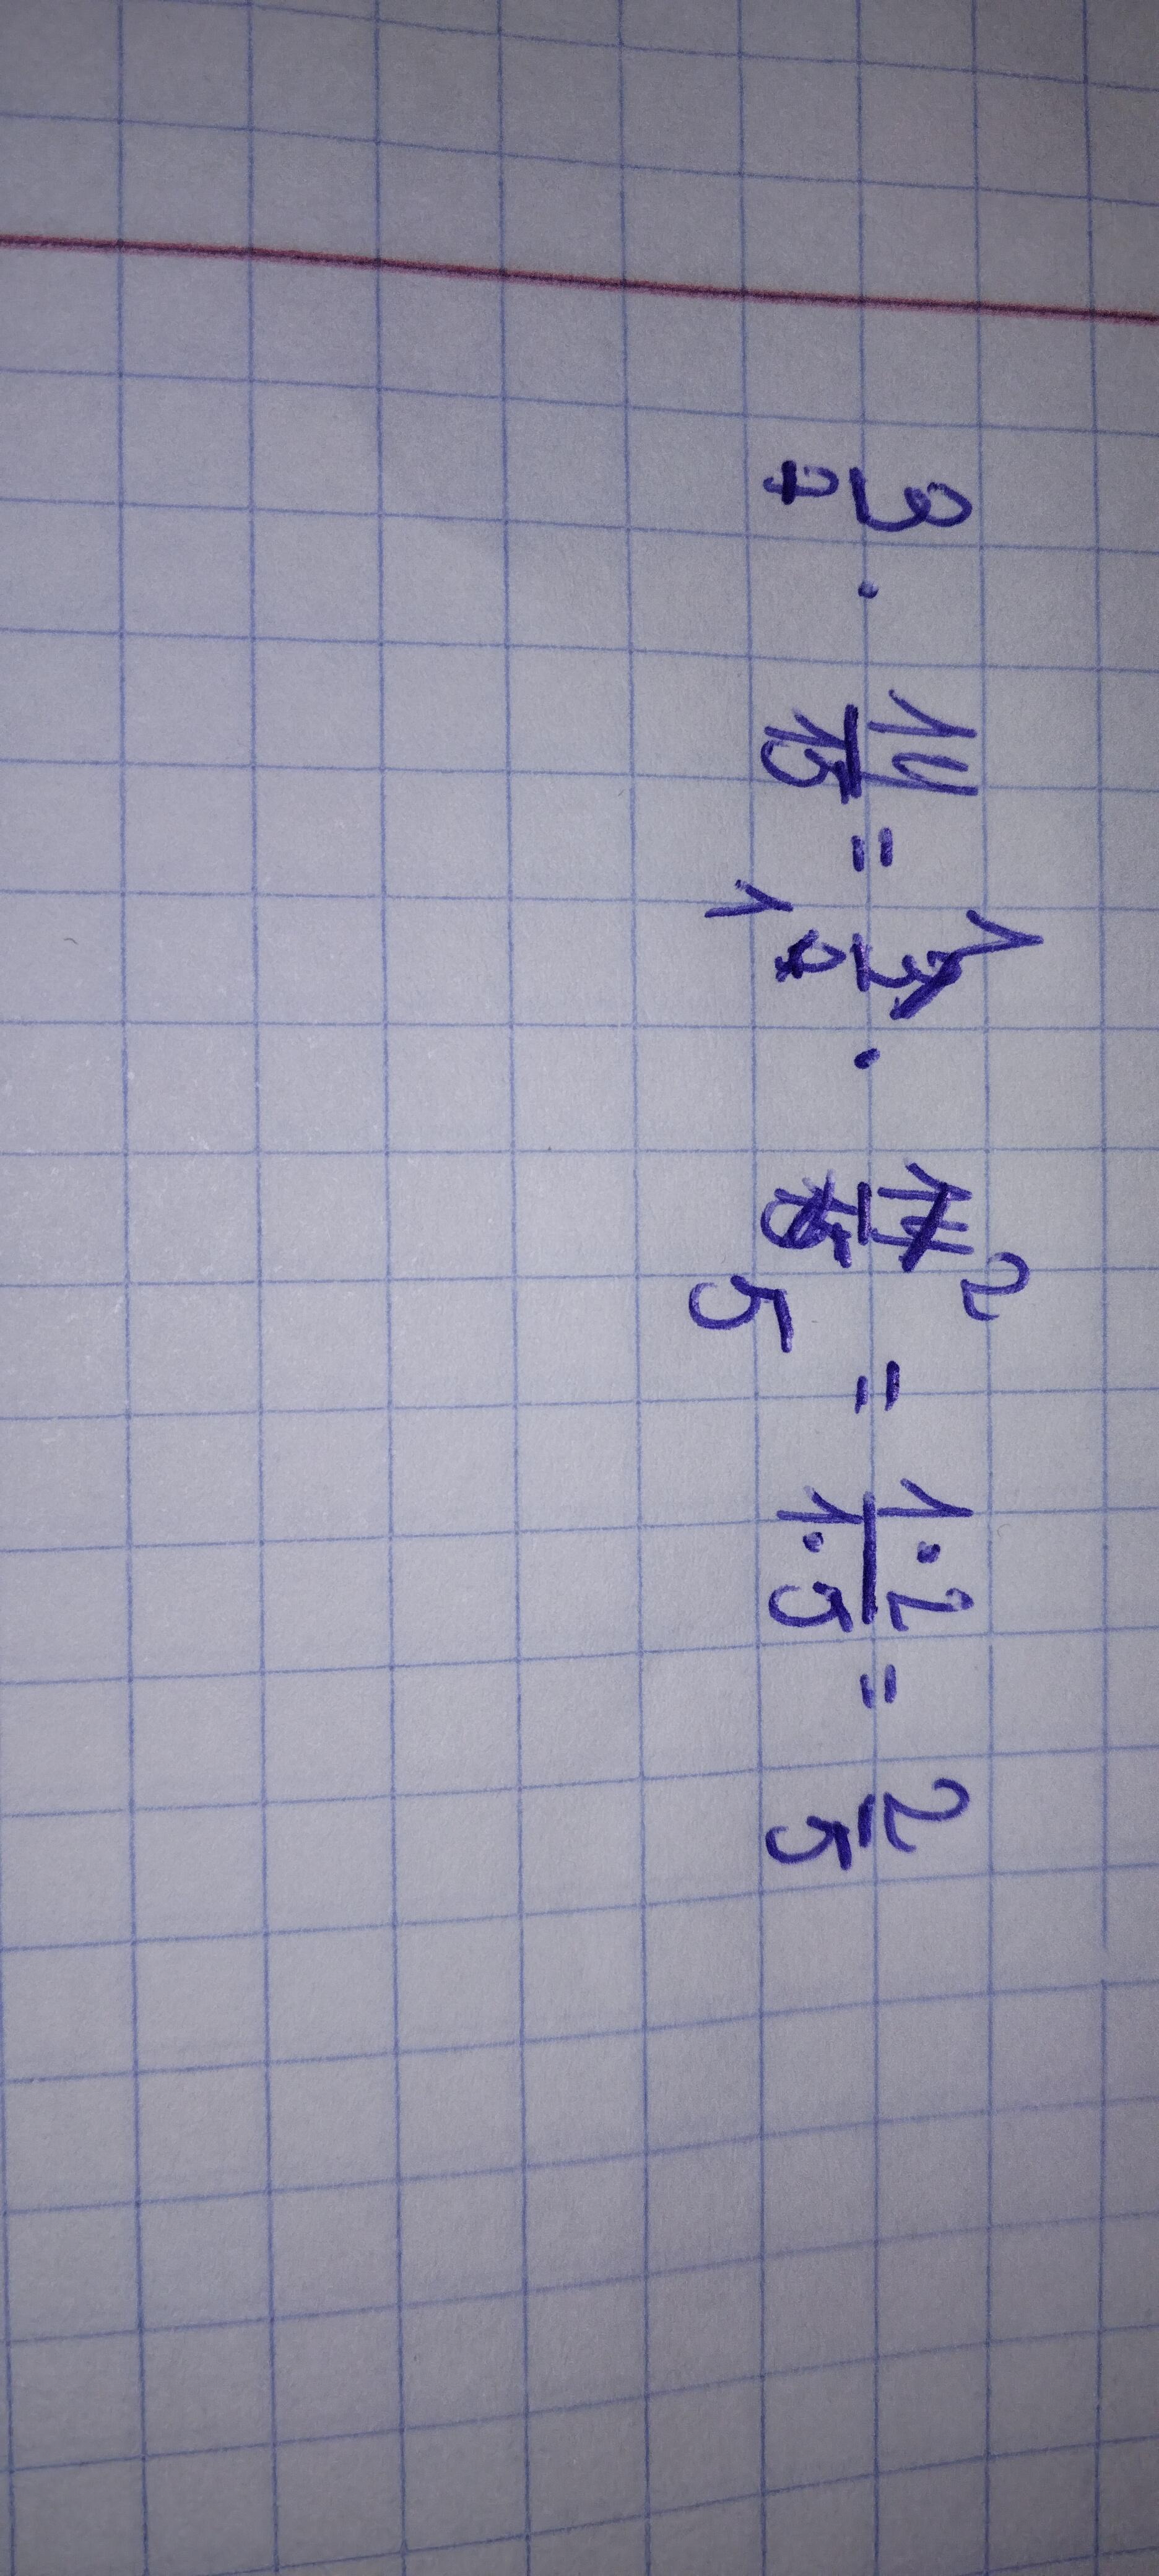 3/7 · 14/15 = 3/7 · 14/15 = 1·2/1·5 = 2/5